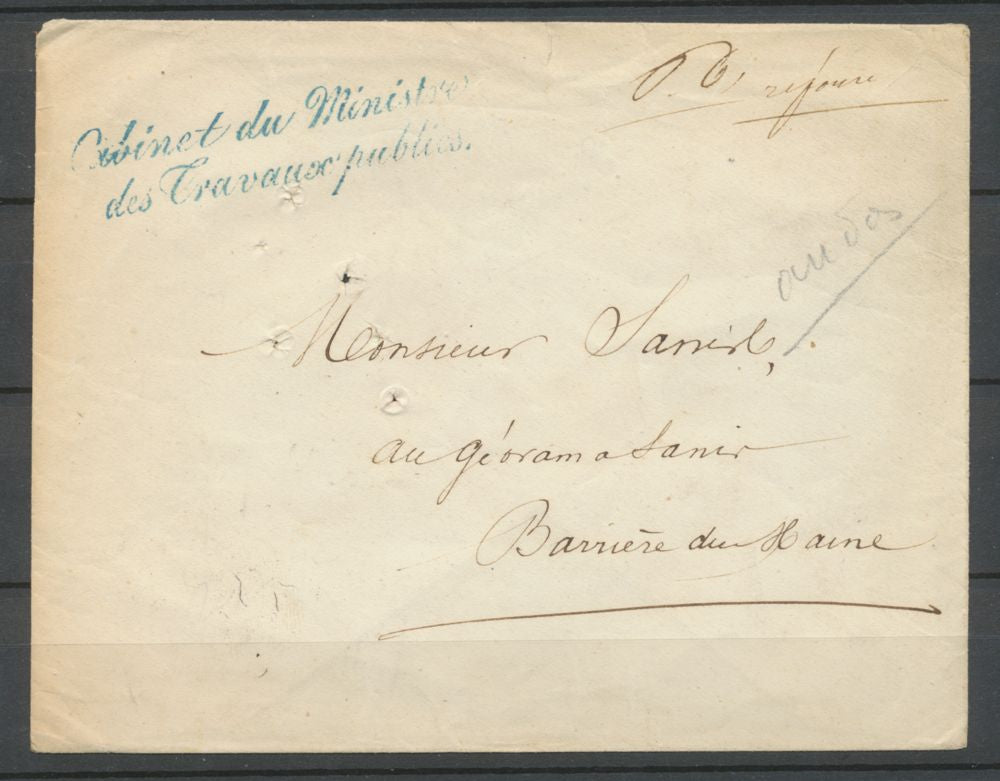 Cabinet du Ministre
des Travaux publics.
au dos
Monsieur Sanis,
au géorama Sanis
Barrière du Maine